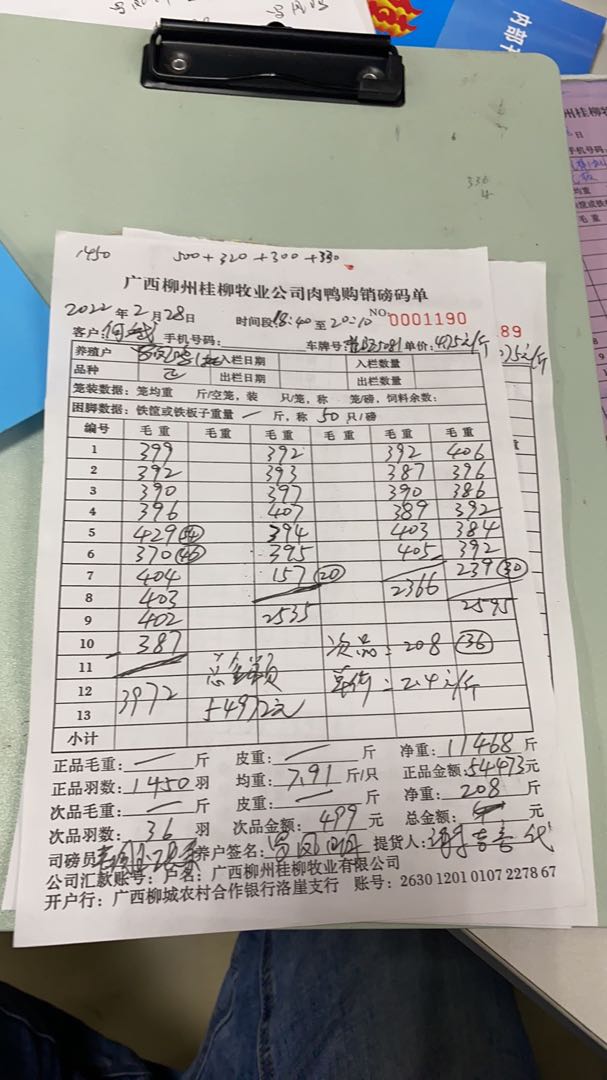 1450 500+320+300+330
广西柳州桂柳牧业公司肉鸭购销磅码单
2022年2月28日 时间段18:40至20:10 NO:0001190
客户: 手机号码: 车牌号: 单价:4.75元/斤
养殖户 入栏日期 入栏数量
品种 出栏日期 出栏数量
笼装数据:笼均重 斤/空笼,装 只/笼,称 笼/磅,饲料余数:
困脚数据:铁筐或铁板子重量 一 斤,称 50 只/磅
编号 毛重 毛重 毛重 毛重 毛重 毛重
1 399 392 392 406
2 392 393 387 396
3 390 397 390 386
4 396 407 389 392
5 429 54 394 403 384
6 370 46 395 405 392
7 404 157 20 239 30
8 403 2366
9 402 2535 2595
10 387 次品:208 36
11 总金额 单价:2.4元/斤
12 3972
13 54972元
小计
正品毛重: 一 斤 皮重: 一 斤 净重:11468斤
正品羽数:1450羽 均重:7.91斤/只 正品金额:54473元
次品毛重: 一 斤 皮重: 一 斤 净重:208斤
次品羽数:36羽 次品金额:499元 总金额: 元
司磅员: 养户签名: 提货人: 代
公司汇款账号:户名:广西柳州桂柳牧业有限公司
开户行:广西柳城农村合作银行洛崖支行 账号:2630 1201 0107 2278 67